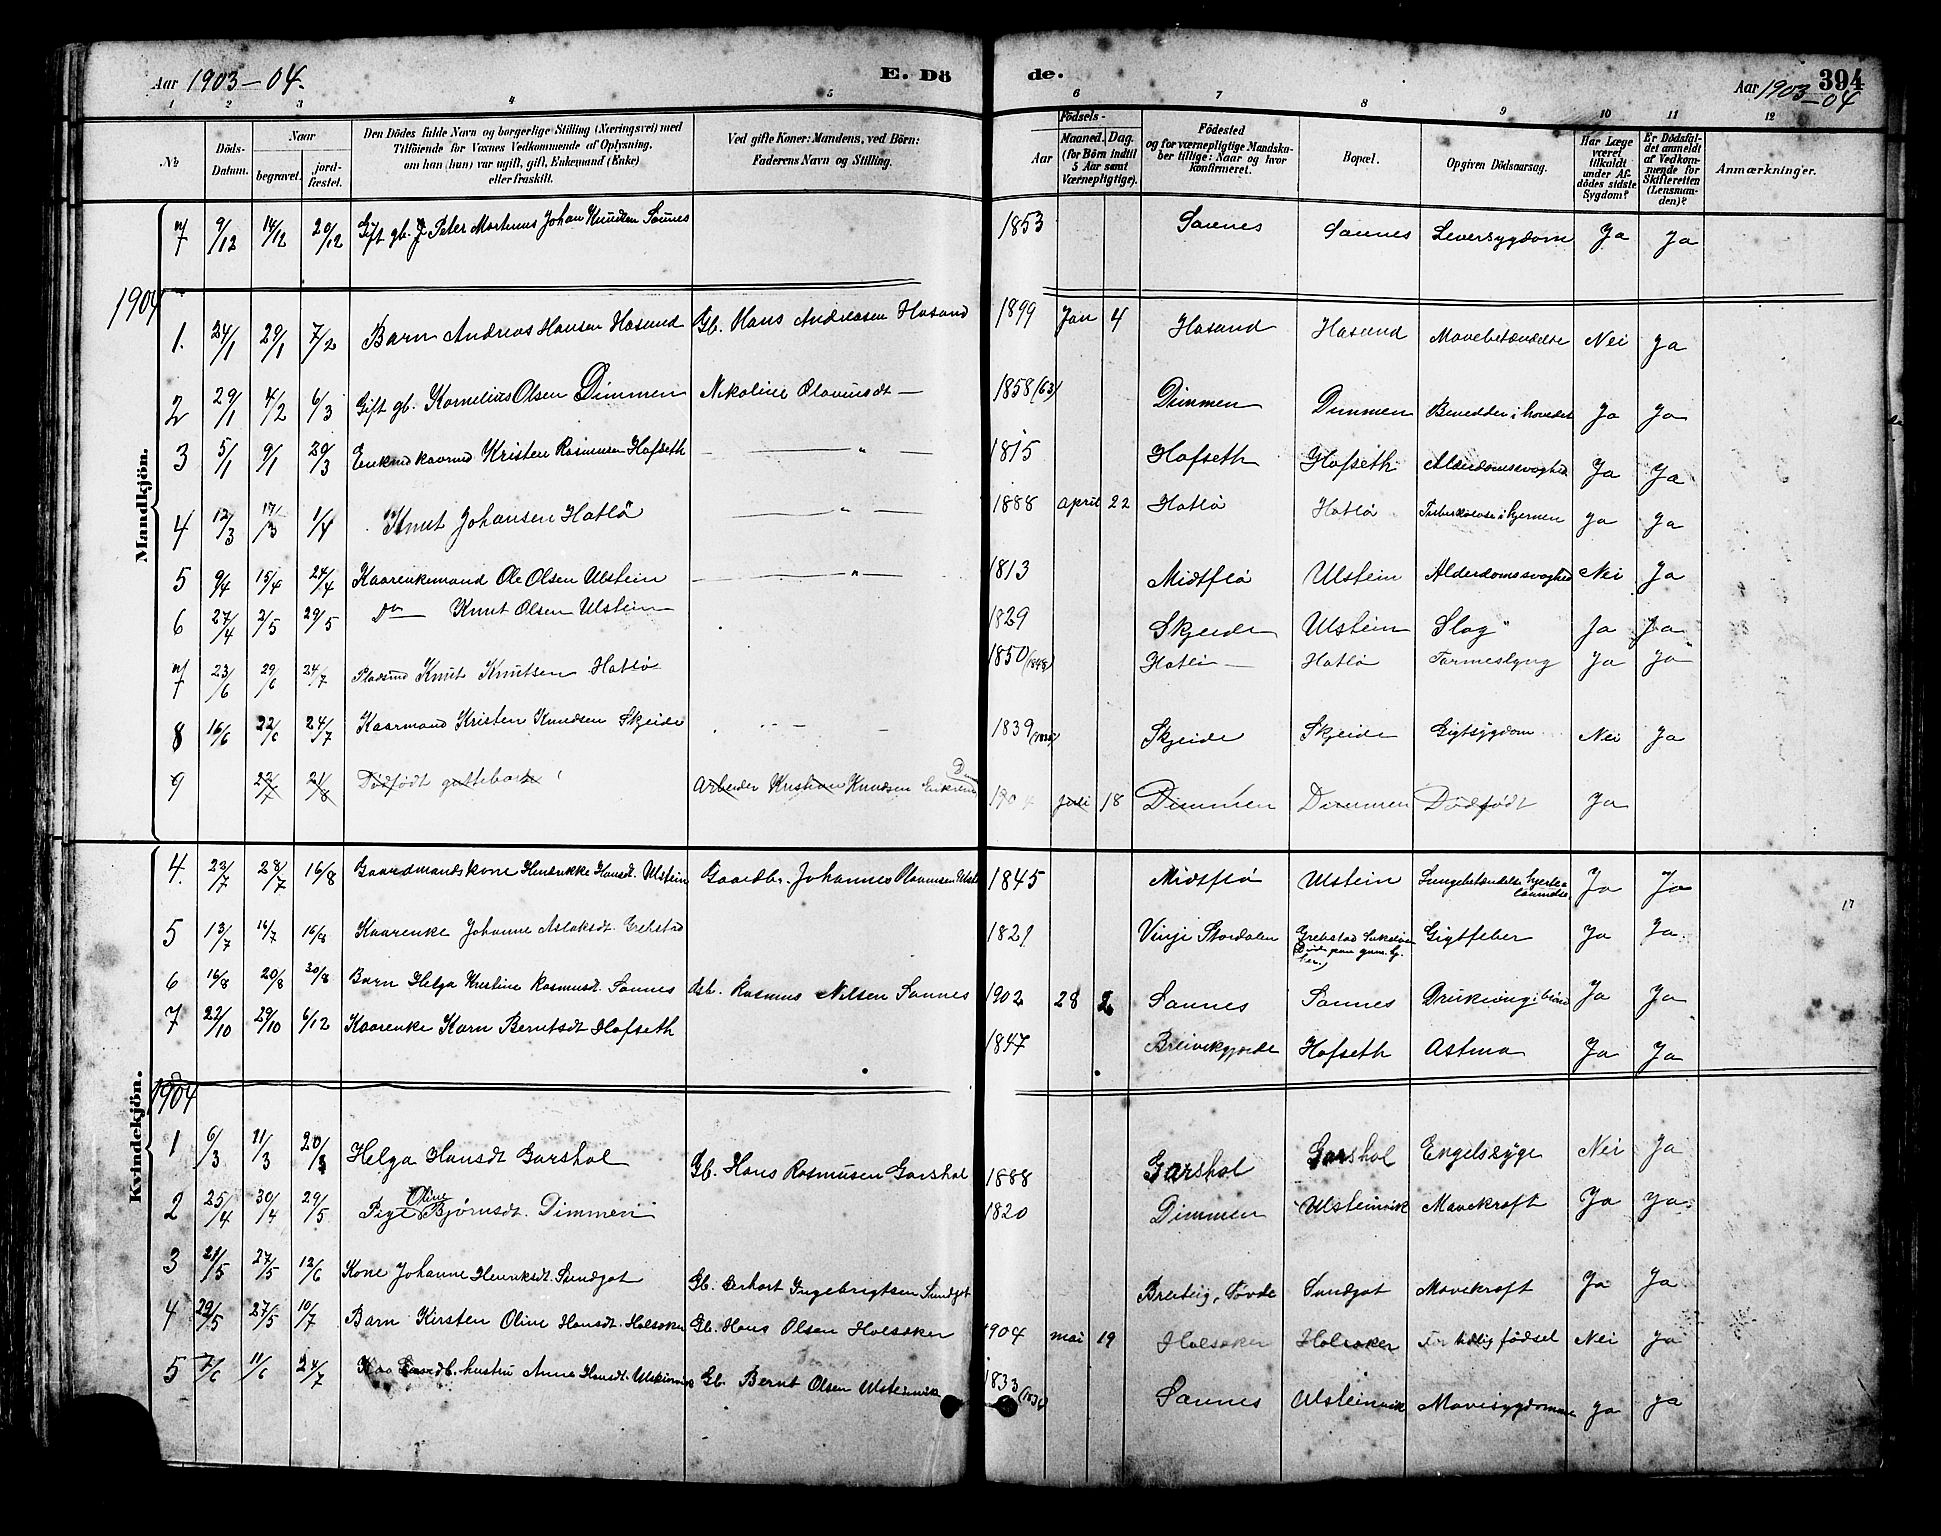 Aar 1903-04. E. Dö de. Aar 1903-04 394
1 2 3 4 5 6 7 8 9 10 11 12
№ Döds-Datum. Naar begravet. jord-fæstet. Den Dödes fulde Navn og borgerlige Stilling (Næringsvei) med Tilföiende for Voxnes Vedkommende af Oplysning, om han (hun) var ugift, gift, Enkemand (Enke) eller fraskilt. Ved gifte Koner: Mandens, ved Börn: Faderens Navn og Stilling. Födsels- Aar Maaned. Dag. (for Börn indtil 5 Aar samt Værnepligtige). Födested og for værnepligtige Mandskaber tillige: Naar og hvor konfirmeret. Bopæl. Opgiven Dödsaarsag. Har Læge været tilkaldt under Afdödes sidste Sygdom? Er Dödsfaldet anmeldt af Vedkommende for Skifteretten (Lensmanden)? Anmærkninger.
Mandkjön.
7 9/12 14/12 20/12 Gift gb. Peter Martinus Johan Knudsen Saunes 1853 Saunes Saunes Leversygdom Ja Ja
1904
1. 24/1 29/1 7/2 Barn Andreas Hansen Hasund Gb. Hans Andreasen Hasund 1899 Jan 4 Hasund Hasund Mavebetændelse Nei Ja
2 29/1 4/2 6/3 Gift gb. Kornelius Olsen Dimmen Nikoline Olavusdt — 1858 (63) Dimmen Dimmen Benedder i hovedet Ja Ja
3 5/1 9/1 20/3 Enkmd kaarmd Kristen Rasmusen Hofseth — " — 1815 Hofseth Hofseth Alderdomssvaghed Ja Ja
4 12/3 17/3 1/4 Knut Johansen Hatlö — " — 1888 april 22 Hatlö Hatlö Tuberkulose i hjernen Ja Ja
5 9/4 15/4 24/4 Kaarenkemand Ole Olsen Ulstein — " — 1813 Midtflö Ulstein Alderdomssvaghed Nei Ja
6 27/4 2/5 29/5 Do — Knut Olsen Ulstein 1829 Skjeide Ulstein Slag Ja Ja
7 23/6 29/6 24/7 Pladsmd Knut Knutsen Hatlö 1850 (1848) Hatlö — Hatlö Tarmeslyng Ja Ja
8 16/6 22/6 24/7 Kaarmand Kristen Knudsen Skjeide 1839 Skjeide Skjeide Gigtsygdom Nei Ja
9 22/7 21/8 Dödfödt guttebarn Arbeider Kristian Knudsen 1904 juli 18 Dimmen Dimmen Dödfödt Ja
Kvindekjön.
4. 23/7 28/7 16/8 Gaardmandskone Hendrikke Hansdt. Ulstein Gaardbr. Johannes Rasmusen Ulst 1845 Midtflö Ulstein Lungebetændelse hjerte- Ja Ja
5 13/7 16/7 16/8 Kaarenke Johanne Aslaksdt. Grebstad 1821 Vinje Stordalen Grebstad Gigtfeber Ja Ja
6 16/8 20/8 30/8 Barn Helga Kristine Rasmusdt. Saunes Gb. Rasmus Nilsen Saunes 1902 28 2 Saunes Saunes Drukning i brönd Ja Ja
7 22/10 29/10 6/12 Kaarenke Karn Berntsdt Hofseth 1847 Breivikgjerde Hofseth Astma Ja Ja
1904
1 6/3 11/3 20/3 Helga Hansdt Garshol Gb. Hans Rasmusen Garshol 1888 Garshol Garshol Engelsyge Nei Ja
2 25/4 30/4 29/5 Pige Oline Bjørnsdt. Dimmen 1820 Dimmen Ulsteinvik Mavekræft Ja Ja
3 21/5 27/5 12/6 Kone Johanne Henriksdt. Sundgot Gb. Gerhart Ingebrigtsen Sundgot Breiteig, Søvde Sundgot Mavekræft Ja Ja
4 22/5 27/5 10/7 Barn Kirsten Oline Hansdt. Holsæker Gb. Hans Olsen Holsæker 1904 mai 19 Holsæker Holsæker For tidlig fødsel Nei Ja
5 7/6 11/6 24/7 Gaardb. hustru Anna Hansdt. Ulsteinvik Gb. Bernt Olsen Ulsteinvik 1833 Saunes Ulsteinvik Mavesygdomme Ja Ja